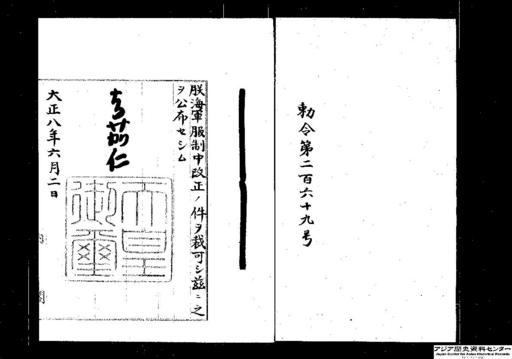 勅令第二百六十九号
朕海軍服制中改正ノ件ヲ裁可シ茲ニ之
ヲ公布セシム
嘉仁
天皇
御璽
大正八年六月二日
アジア歴史資料センター
Japan Center for Asian Historical Records